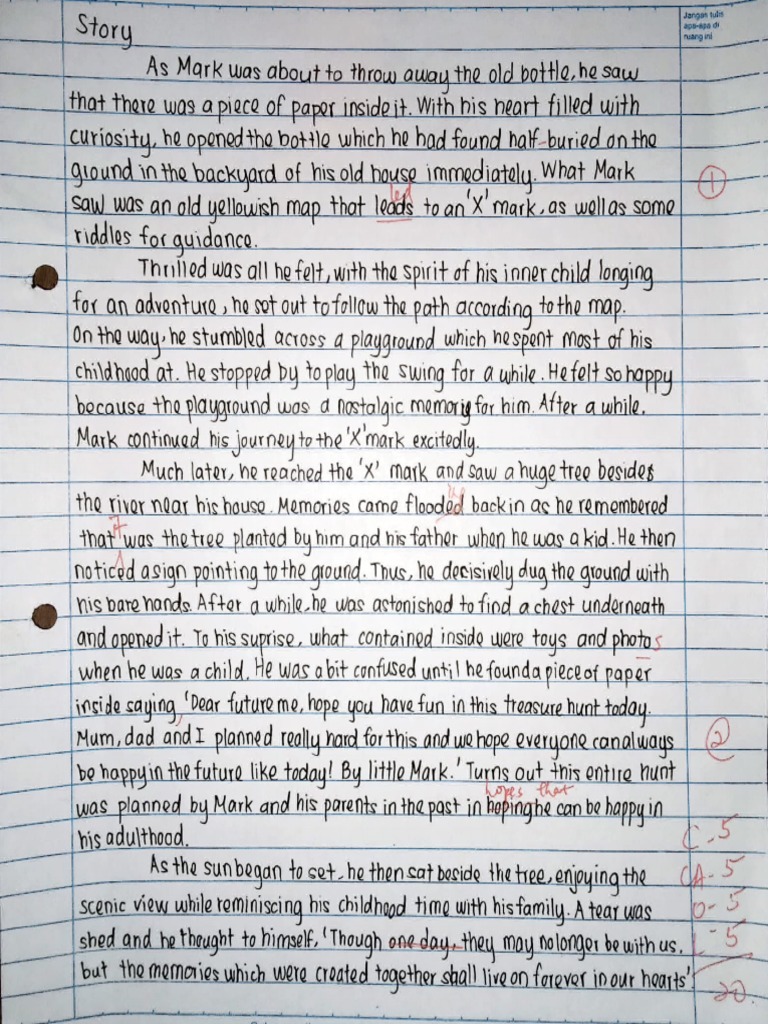 Story
Jangan tulis
apa-apa di
ruang ini
As Mark was about to throw away the old bottle, he saw
that there was a piece of paper inside it. With his heart filled with
curiosity, he opened the bottle which he had found half-buried on the
ground in the backyard of his old house immediately. What Mark
led
①
saw was an old yellowish map that leads to an 'X' mark, as well as some
riddles for guidance.
Thrilled was all he felt, with the spirit of his inner child longing
for an adventure, he set out to follow the path according to the map.
On the way, he stumbled across a playground which he spent most of his
childhood at. He stopped by to play the swing for a while. He felt so happy
because the playground was a nostalgic memory for him. After a while,
Mark continued his journey to the 'X' mark excitedly.
Much later, he reached the 'X' mark and saw a huge tree besides
the river near his house. Memories came flooded back in as he remembered
that was the tree planted by him and his father when he was a kid. He then
noticed a sign pointing to the ground. Thus, he decisively dug the ground with
his bare hands. After a while, he was astonished to find a chest underneath
and opened it. To his suprise, what contained inside were toys and photos
when he was a child. He was a bit confused until he found a piece of paper
inside saying 'Dear future me, hope you have fun in this treasure hunt today.
Mum, dad and I planned really hard for this and we hope everyone can always
②
be happy in the future like today! By little Mark.' Turns out this entire hunt
hopes that
was planned by Mark and his parents in the past in hoping he can be happy in
his adulthood.
C - 5
As the sun began to set, he then sat beside the tree, enjoying the
CA - 5
scenic view while reminiscing his childhood time with his family. A tear was
O - 5
shed and he thought to himself, 'Though one day, they may no longer be with us,
L - 5
but the memories which were created together shall live on forever in our hearts'
20